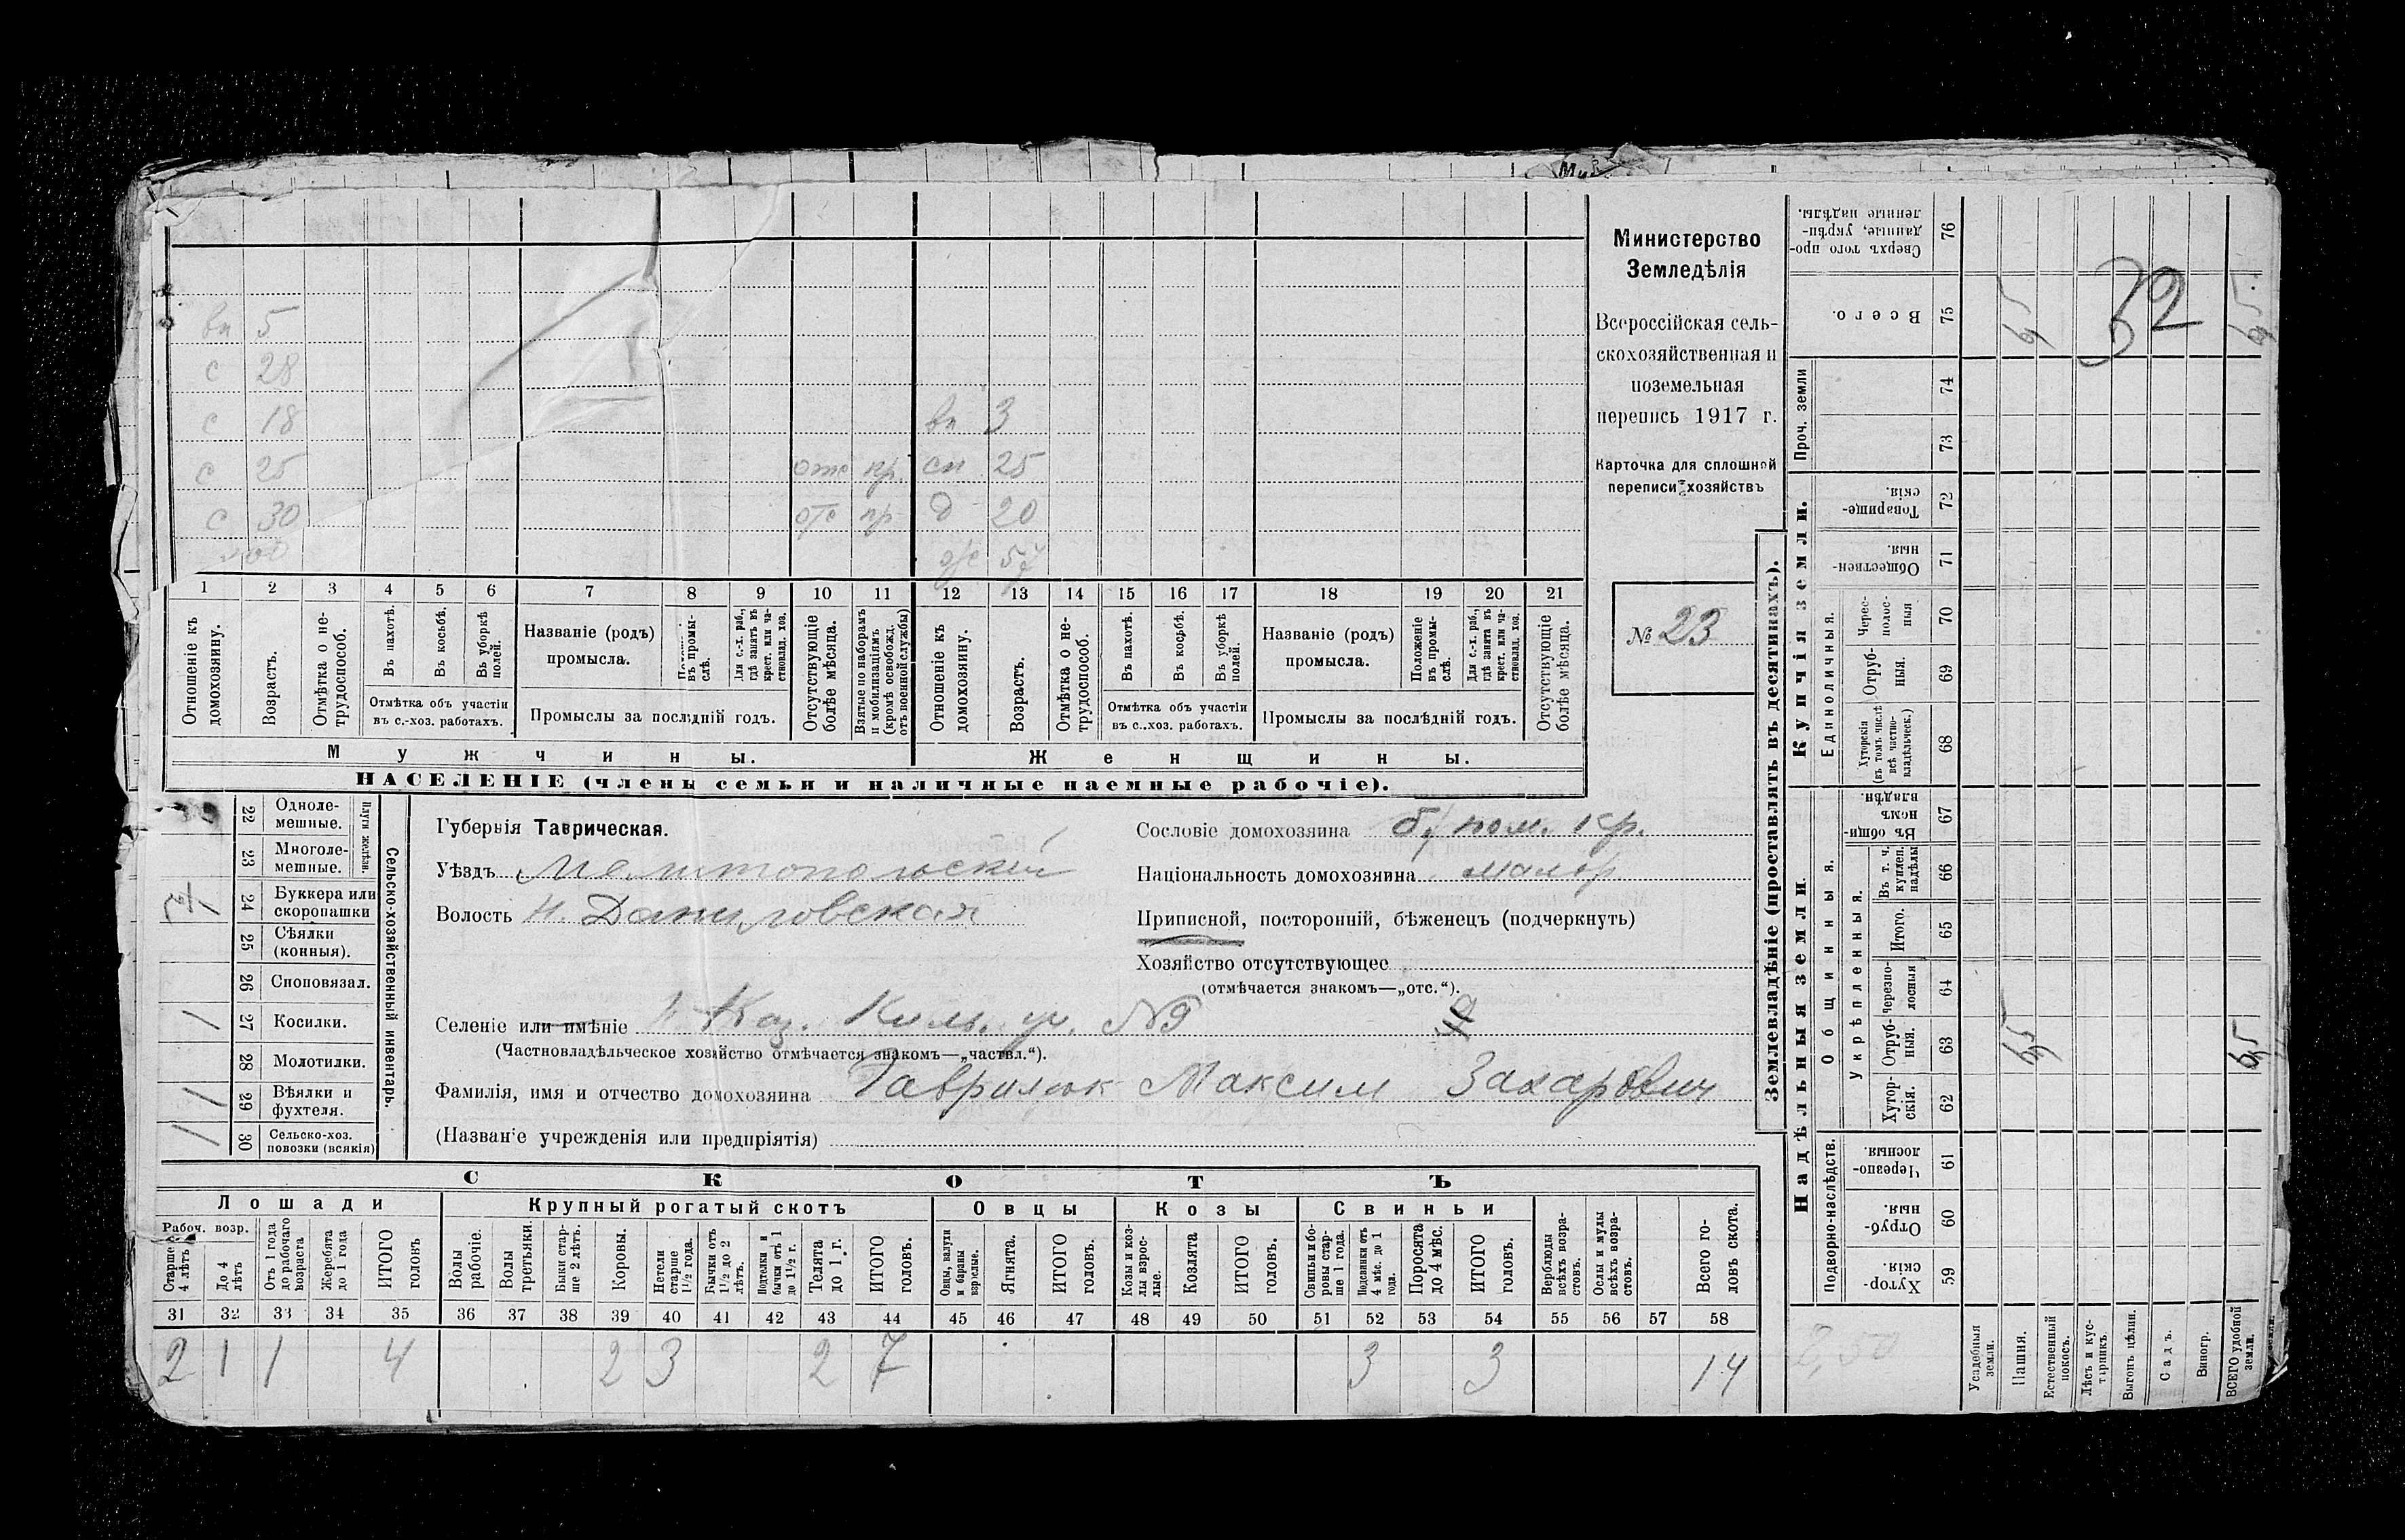 вн 5
с 28
с 18 вн 3
с 25 отс пр. сн 25
с 30 отс пр д 20
60 ж 57
1 2 3 4 5 6 7 8 9 10 11 12 13 14 15 16 17 18 19 20 21
Отношеніе къ домохозяину.
Возрастъ.
Отмѣтка о не-трудоспособ.
Въ пахотѣ.
Въ косьбѣ.
Въ уборкѣ полей.
Отмѣтка объ участіи
въ с.-хоз. работахъ.
Названіе (родъ)
промысла.
въ промы-слѣ.
Для с.-х. раб., гдѣ занятъ въ крест. или ча-стновлад. хоз.
Промыслы за послѣдній годъ.
Отсутствующіе болѣе мѣсяца.
Взятые по наборамъ и мобилизаціямъ (кромѣ освобожд. отъ военной службы)
Отношеніе къ домохозяину.
Возрастъ.
Отмѣтка о не-трудоспособ.
Въ пахотѣ.
Въ косьбѣ.
Въ уборкѣ полей.
Отмѣтка объ участіи
въ с.-хоз. работахъ.
Названіе (родъ)
промысла.
Положеніе въ промы-слѣ.
Для с.-х. раб., гдѣ занята въ крест. или ча-стновлад. хоз.
Промыслы за послѣдній годъ.
Отсутствующіе болѣе мѣсяца.
Мужчины. Женщины.
НАСЕЛЕНІЕ (члены семьи и наличные наемные рабочіе).
Министерство
Земледѣлія
Всероссійская сель-
скохозяйственная и
поземельная
перепись 1917 г.
Карточка для сплошной
переписи хозяйствъ
№ 23
Сельско-хозяйственный инвентарь.
Плуги желѣзн.
22 Одноле-мешные.
23 Многоле-мешные.
24 Буккера или скоропашки
25 Сѣялки (конныя).
26 Сноповязал.
1 27 Косилки.
28 Молотилки.
1 29 Вѣялки и фухтеля.
1 30 Сельско-хоз. повозки (всякія)
Губернія Таврическая.
Уѣздъ Мелитопольскій
Волость Н. Даниловская
Сословіе домохозяина б. пом. кр.
Національность домохозяина малор
Приписной, посторонній, бѣженецъ (подчеркнуть)
Хозяйство отсутствующее
(отмѣчается знакомъ—„отс.“).
Селеніе или имѣніе 1 Каз. Киль. уч. №9
(Частновладѣльческое хозяйство отмѣчается знакомъ—„частвл.“).
Фамилія, имя и отчество домохозяина Гаврилюк Максим Захарович
(Названіе учрежденія или предпріятія)
СКОТЪ
Лошади Крупный рогатый скотъ Овцы Козы Свиньи
Рабоч. возр.
Старше 4 лѣтъ
До 4 лѣтъ
Отъ 1 года до рабочаго возраста
Жеребята до 1 года
ИТОГО головъ
Волы рабочіе.
Волы третьяки.
Быки стар-ше 2 лѣтъ.
Коровы.
Нетели старше 1½ года.
Бычки отъ 1½ до 2 лѣтъ.
Подтелки и бычки отъ 1 до 1½ г.
Телята до 1 г.
ИТОГО головъ.
Овцы, валухи и бараны взрослые.
Ягнята.
ИТОГО головъ.
Козы и коз-лы взрос-лые.
Козлята
ИТОГО головъ.
Свиньи и бо-ровы стар-ше 1 года.
Подсвинки отъ 4 мѣс. до 1 года.
Поросята до 4 мѣс.
ИТОГО головъ.
Верблюды всѣхъ возра-стовъ.
Ослы и мулы всѣхъ возра-стовъ.
Всего го-ловъ скота.
31 32 33 34 35 36 37 38 39 40 41 42 43 44 45 46 47 48 49 50 51 52 53 54 55 56 57 58
2 1 1 4 2 3 2 7 3 3 14
Землевладѣніе (проставлять въ десятинахъ).
Надѣльныя земли. Купчія земли.
Подворно-наслѣдств.
Общинныя.
Укрѣпленныя.
Единоличныя.
Проч. земли
76 Сверхъ того про-данные, укрѣп-ленные надѣлы.
75 Всего. 6,5 32 6,5
74
73
72 Товарище-скія.
71 Обществен-ныя.
70 Черес-полос-ныя
69 Отруб-ныя.
68 Хуторскія (въ томъ числѣ всѣ частно-владѣльческ.)
67 Въ общи-номъ владѣн.
66 Въ т. ч. куплен. надѣлы
65 Итого.
64 Черезпо-лосныя
63 Отруб-ныя. 6,5 6,5
62 Хутор-скія.
61 Черезпо-лосныя.
60 Отруб-ныя.
59 Хутор-скія.
2,50
Усадебныя земли.
Пашня.
Естественный покосъ.
Лѣсъ и кус-тарникъ.
Выгонъ цѣлин.
Садъ.
Виногр.
ВСЕГО удобной земли.